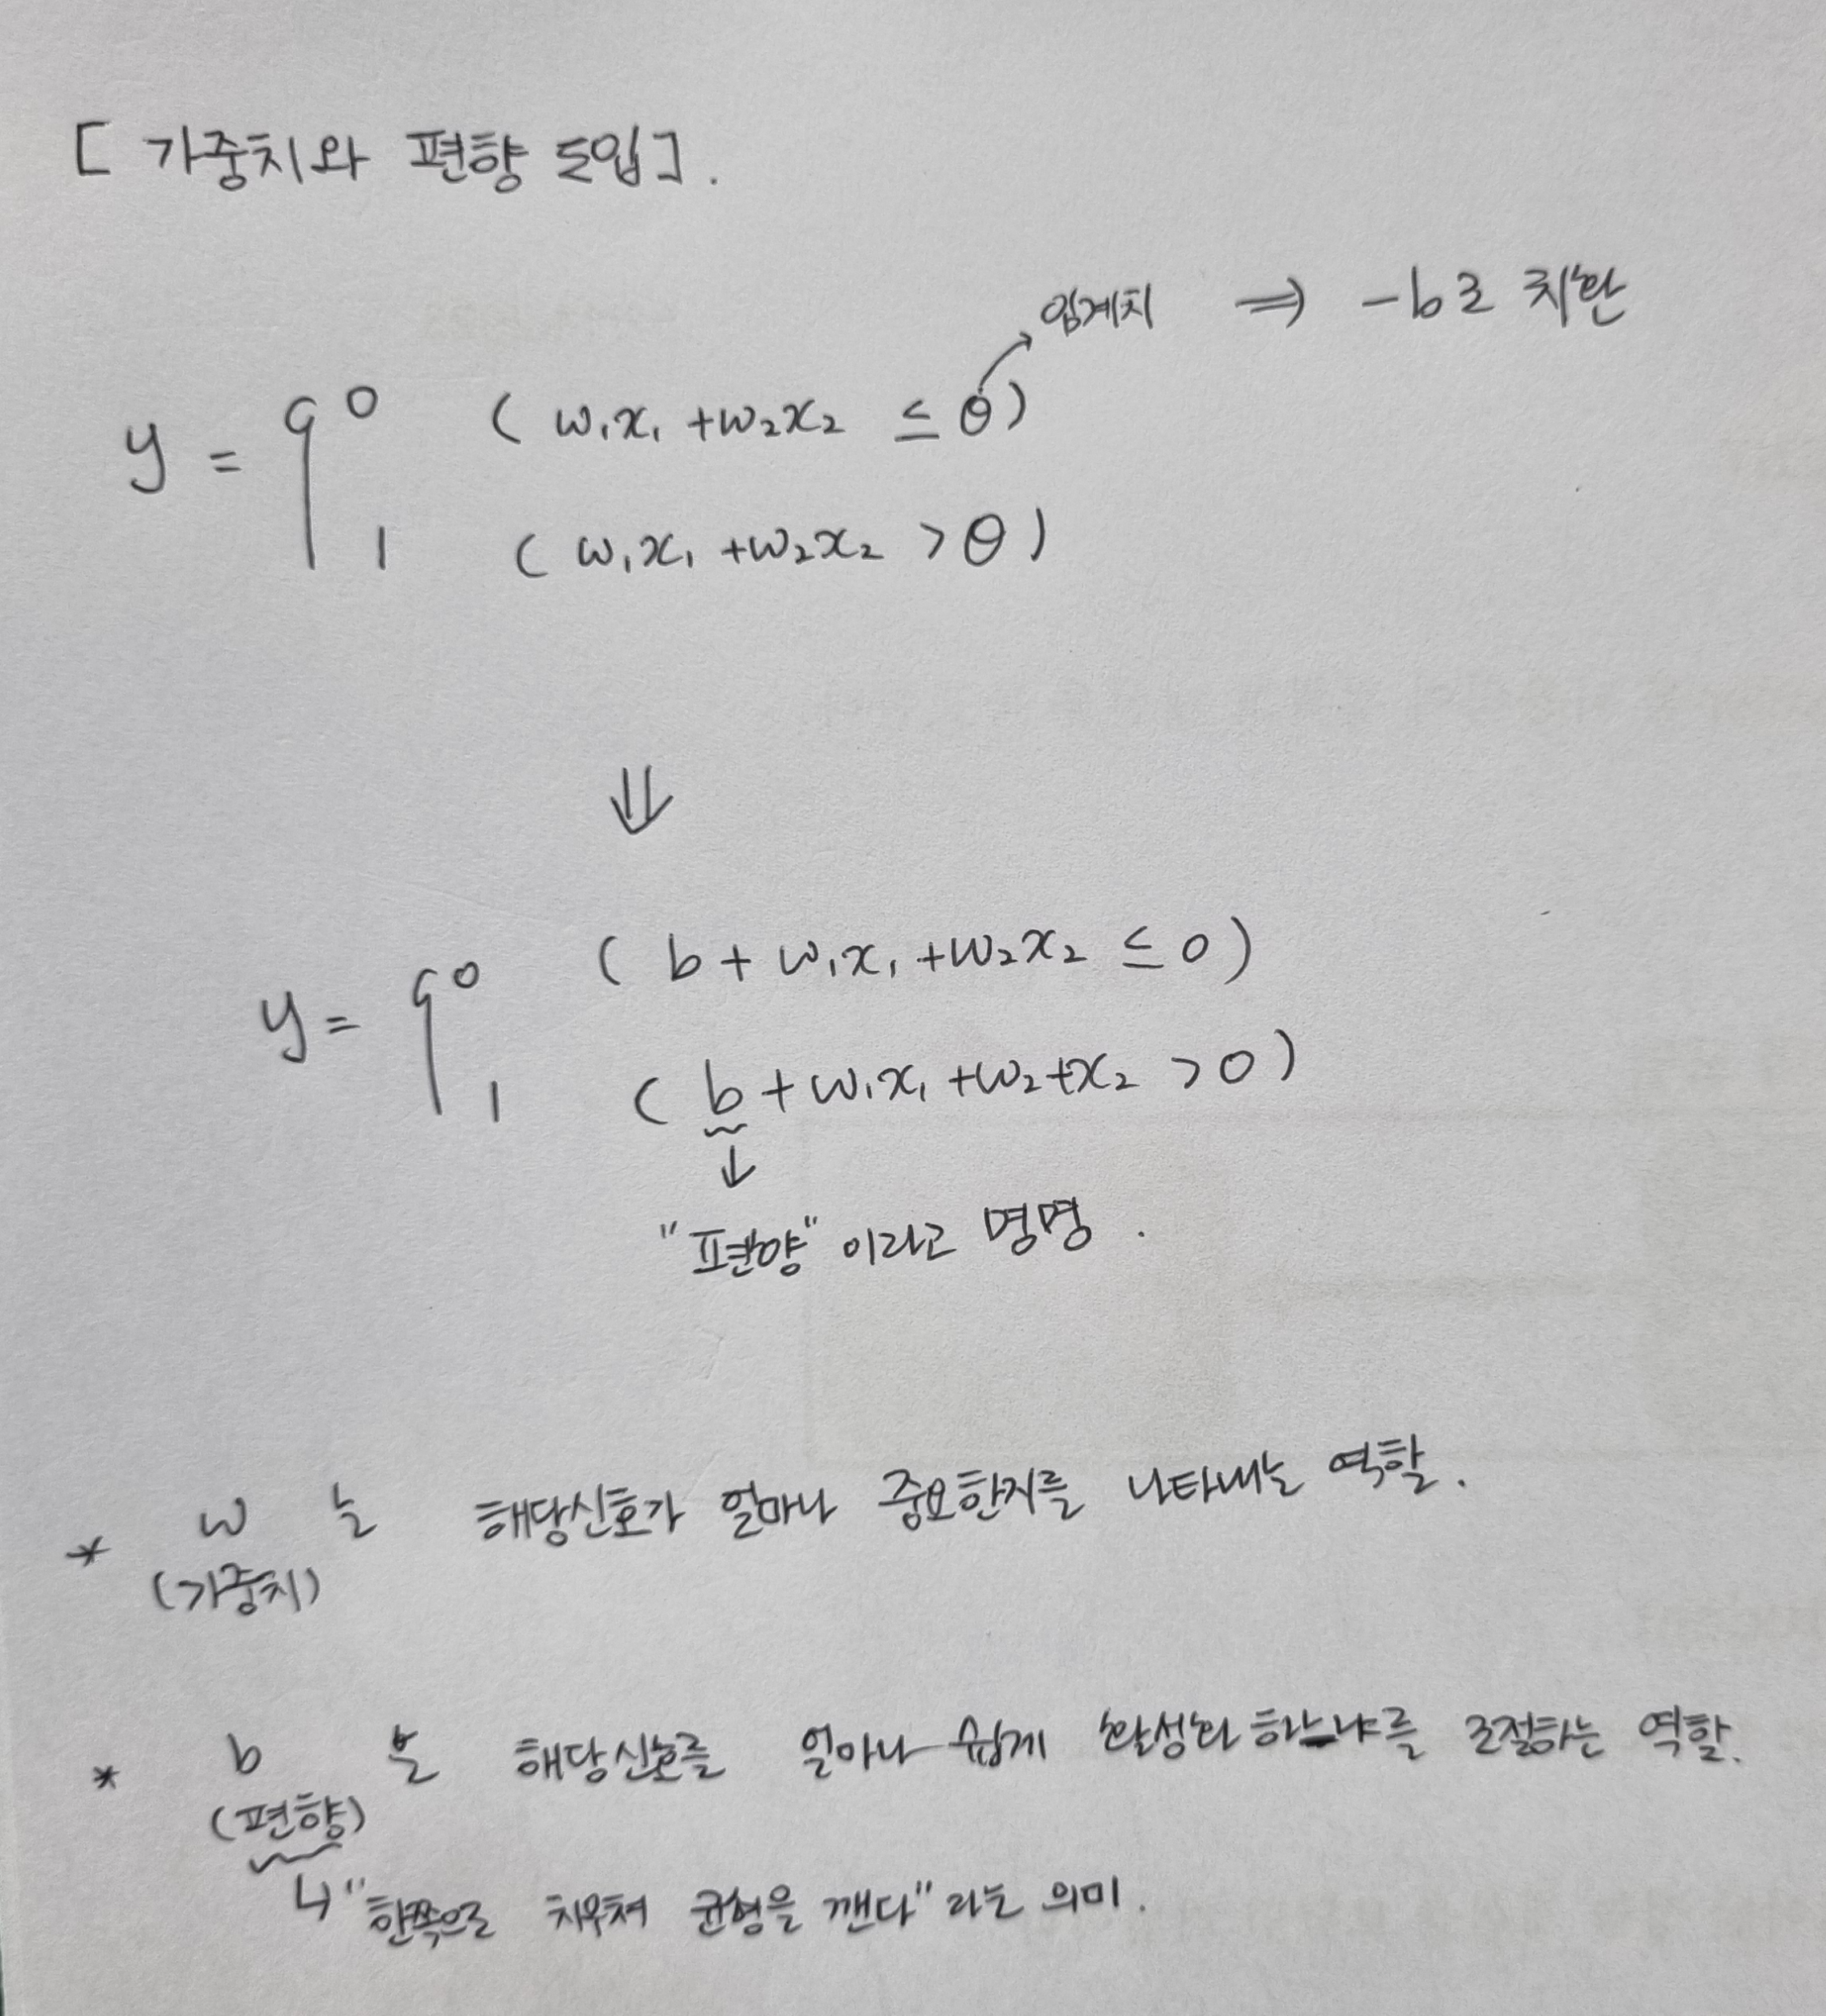 [ 가중치와 편향 도입].
임계치 ⇒ -b로 치환
y = { 0 ( w₁x₁ + w₂x₂ ≤ θ)
1 ( w₁x₁ + w₂x₂ > θ )
⇓
y = { 0 ( b + w₁x₁ + w₂x₂ ≤ 0 )
1 ( b + w₁x₁ + w₂+x₂ > 0 )
↓
"편향" 이라고 명명 .
* w 는 해당신호가 얼마나 중요한지를 나타내는 역할.
(가중치)
* b 는 해당신호를 얼마나 쉽게 활성화 하느냐를 조절하는 역할.
(편향)
↳ "한쪽으로 치우쳐 균형을 깬다" 라는 의미.